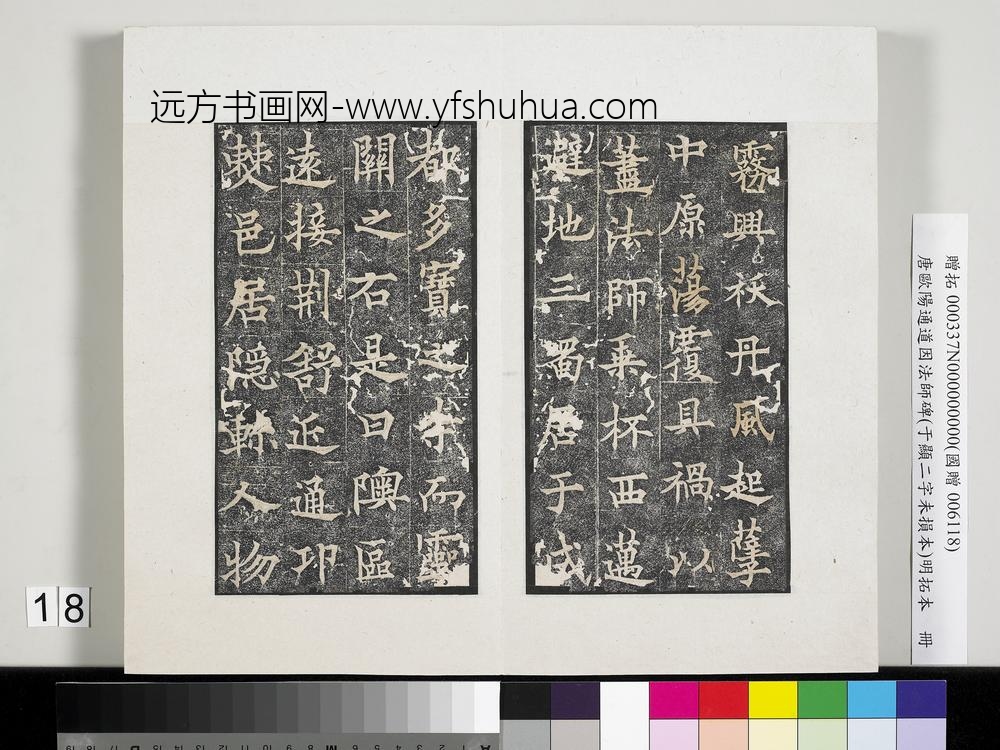 远方书画网-www.yfshuhua.com
霧興祅丹風起孽
中原蕩覆具禍以
藎法師乘杯西邁
避地三蜀居于成
都多寶之寺而靈
關之右是曰隩區
遠接荊舒近通邛
僰邑居隱軫人物
贈拓 000337N000000000(國贈 006118)
唐歐陽通道因法師碑(于顯二字未損本)明拓本 冊
18